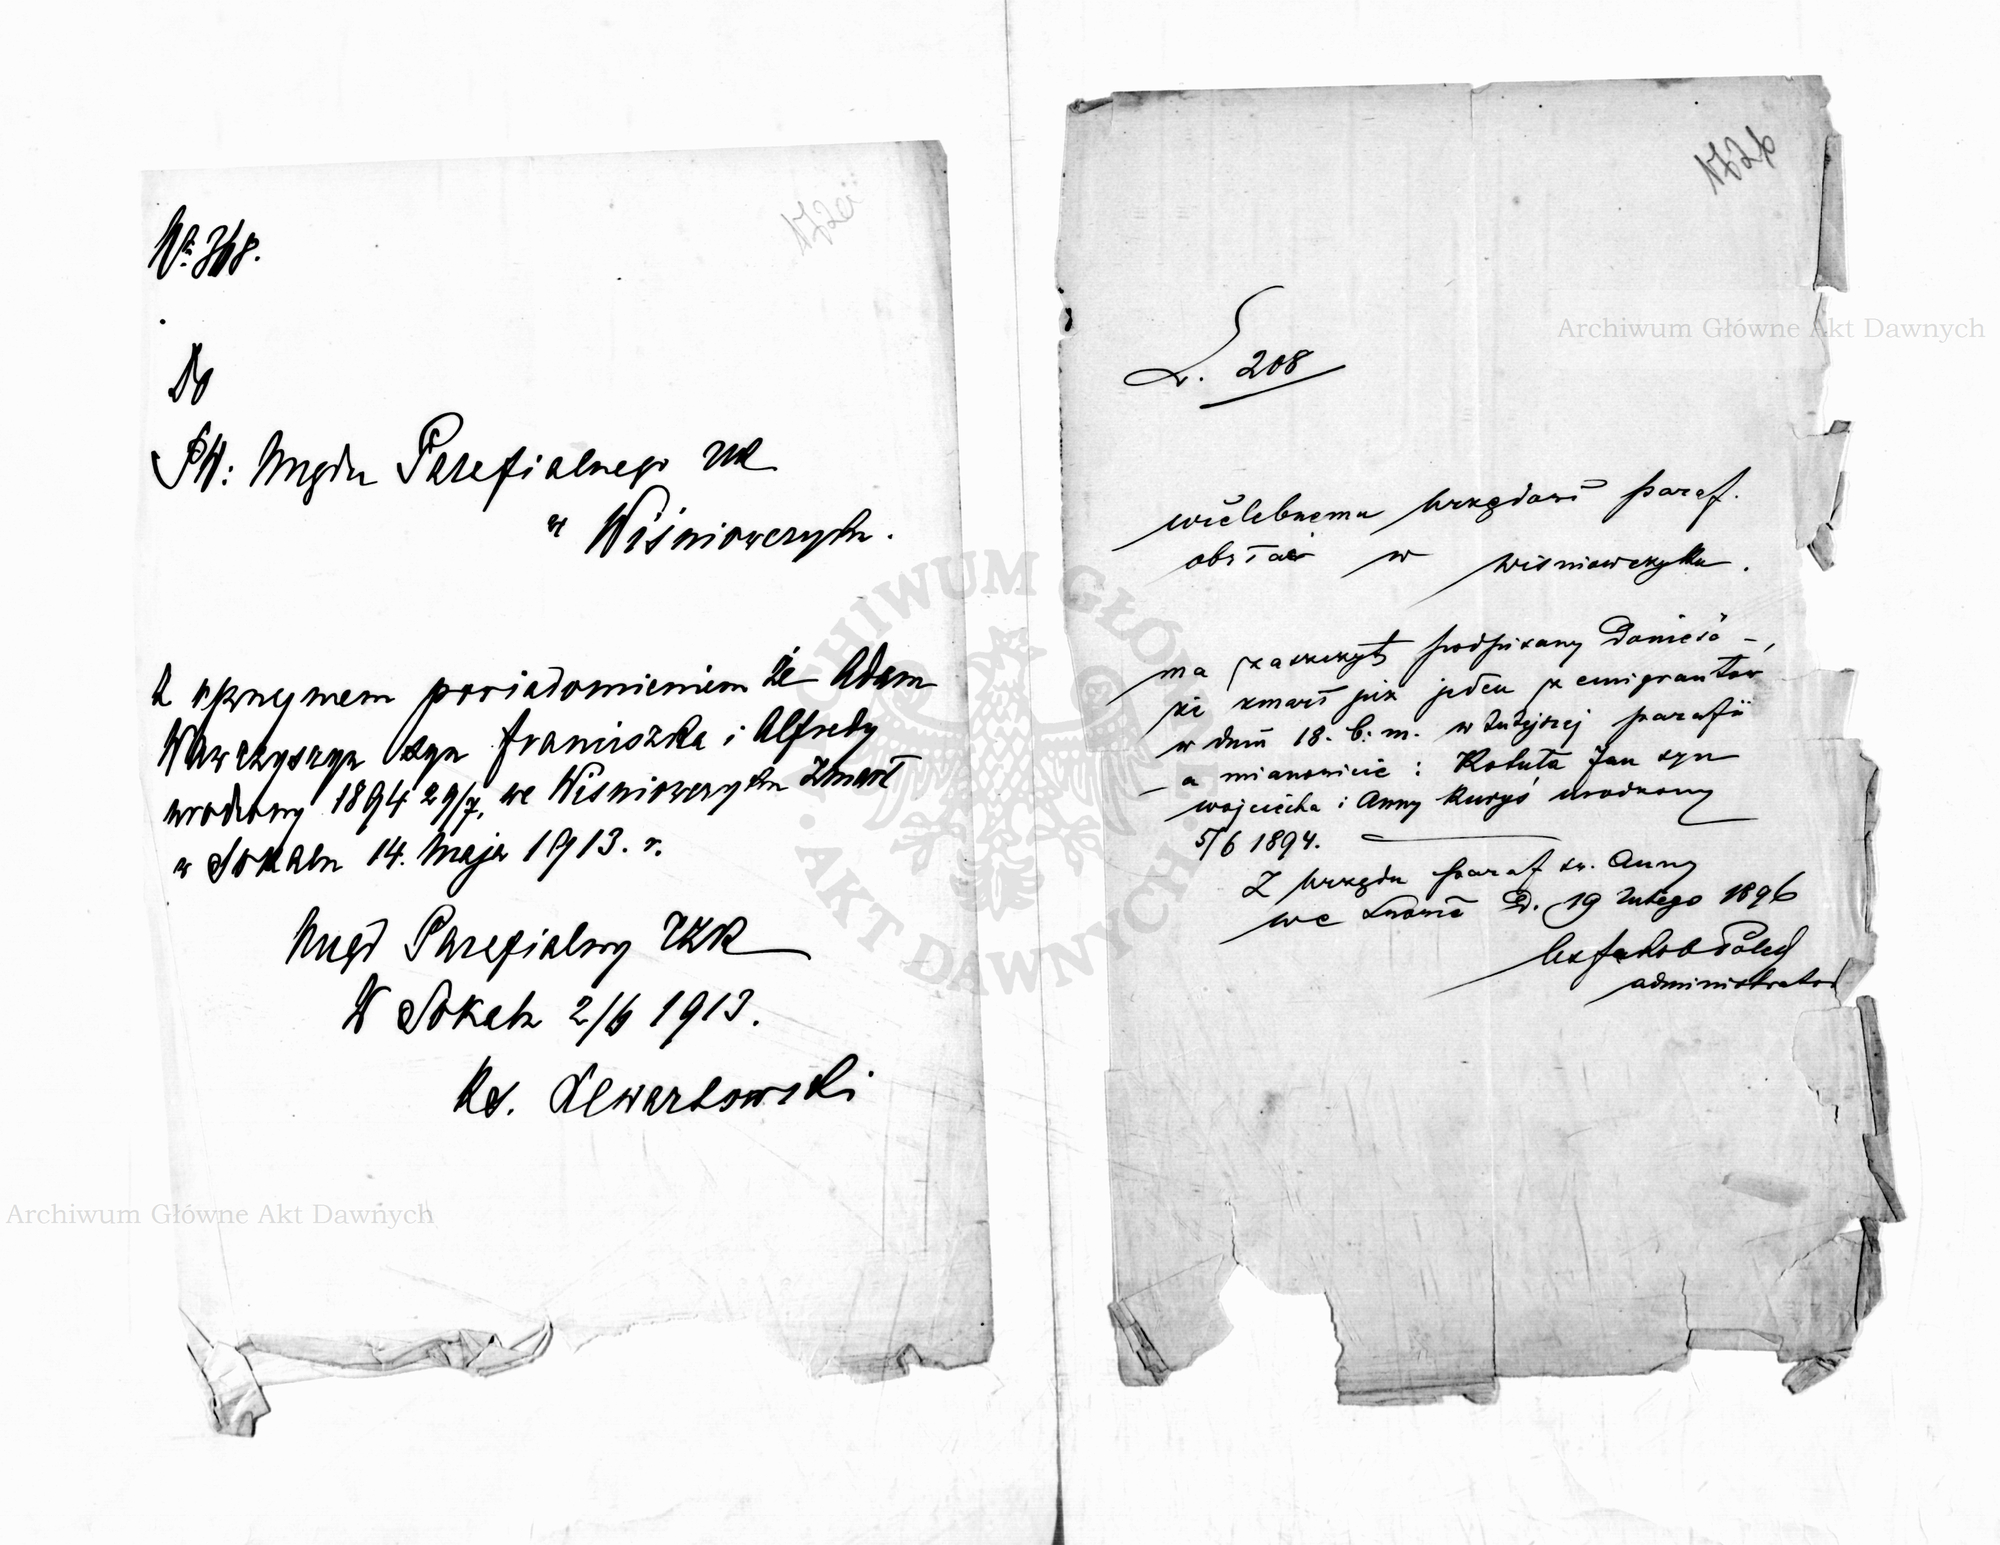 172a
№ 368.
Do
PW: Urzędu Parafialnego rzk
w Wiśniowczyku.
Z uprzejmem powiadomieniem że Adam
Wawrzyszyn syn Franciszka i Alfredy
urodzony 1894 29/7. we Wiśniowczyku zmarł
w Sokalu 14. Maja 1913. r.
Urząd Parafialny RZK
W Sokalu 2/6 1913.
Ks.
172b
L. 208
Wielebnemu Urzędowi paraf.
obrz łać w Wiśniowczyku.
ma zaszczyt podpisany donieść -,
że zmarł już jeden z emigrantów
w dniu 18. b. m. w tutejszej parafii
a mianowicie : Kobuta Jan syn
Wojciecha i Anny Kuryś urodzony
5/6 1894.
Z Urzędu paraf św. Anny
we Lwowie D. 19 lutego 1896
administrator
Archiwum Główne Akt Dawnych
Archiwum Główne Akt Dawnych
ARCHIWUM GŁÓWNE AKT DAWNYCH